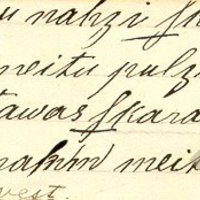 u nahzi ſk
neitu pulzi
tawas ſkara
nakhin meit
west.